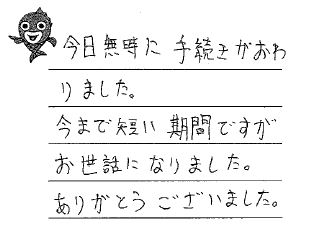 今日無時に 手続きがおわ
りました。
今まで短い 期間ですが
お世話になりました。
ありがとう ございました。